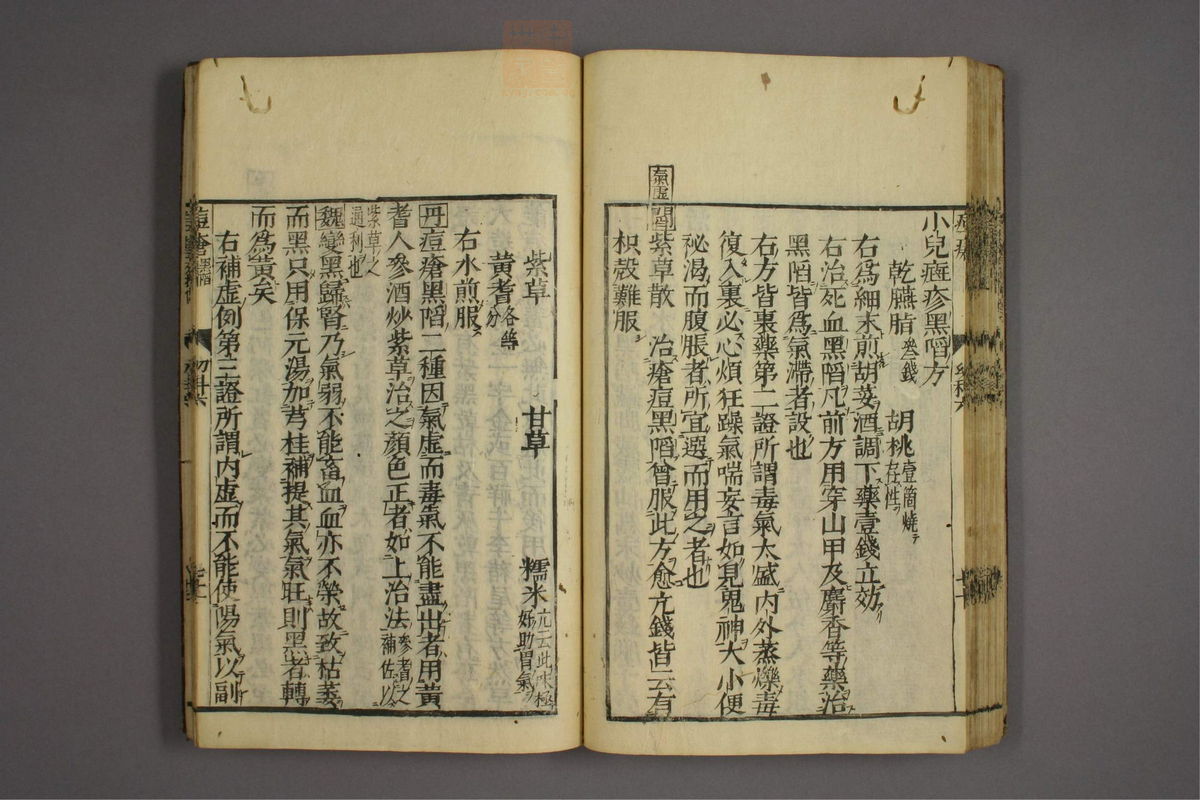 小兒癍疹黑陷方
乾臙脂 叁錢 胡桃 壹箇燒存性
右爲細末煎胡荽酒調下藥壹錢立効
右治死血黑陷凡前方用穿山甲及麝香等藥治
黑陷皆爲氣滯者設也
右方皆裏藥第二證所謂毒氣太盛内外蒸爍毒
復入裏必心煩狂躁氣喘妄言如見鬼神大小便
祕渴而腹脹者所宜選而用之者也
氣虛
閻紫草散 治瘡痘黑陷曾服此方愈亢錢皆云有
枳殼難服
紫草 甘草 糯米 亢云此味極好助胃氣
黄耆 各等分
右水煎服
丹痘瘡黑陷二種因氣虛而毒氣不能盡出者用黄
耆人參酒炒紫草治之顔色正者如上治法 參耆之補佐以
紫草之通利也
魏變黑歸腎乃氣弱不能畜血血亦不榮故致枯萎
而黑只用保元湯加芎桂補提其氣氣旺則黑者轉
而爲黄矣
右補虛例第三證所謂内虛而不能使陽氣以副